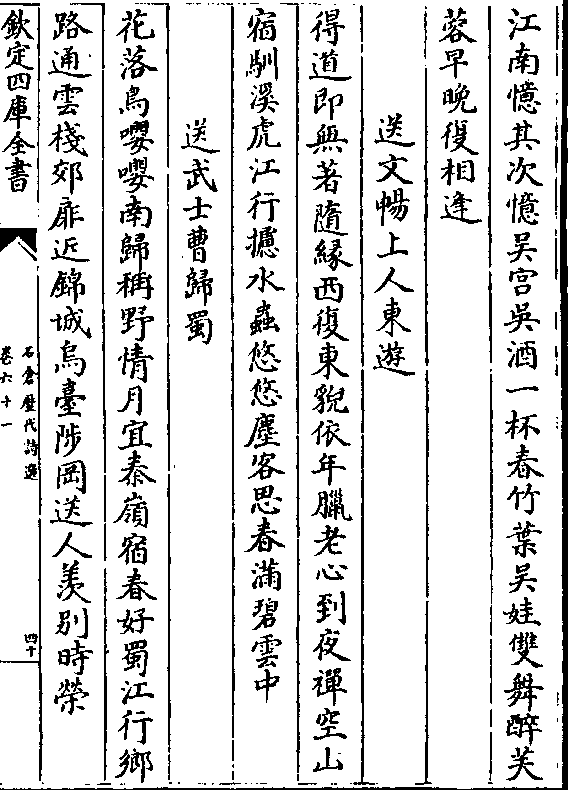 江南憶其次憶吳宫吳酒一杯春竹葉吳娃雙舞醉芙
蓉早晚復相逢
送文暢上人東遊
得道即無著隨緣西復東貌依年臘老心到夜禪空山
宿馴溪虎江行攄水蟲悠悠塵客思春滿碧雲中
送武士曹歸蜀
花落鳥嚶嚶南歸稱野情月宜秦嶺宿春好蜀江行鄉
路通雲棧郊扉近錦城烏臺陟岡送人羨別時榮
欽定四庫全書
石倉歷代詩選
卷六十一
四十